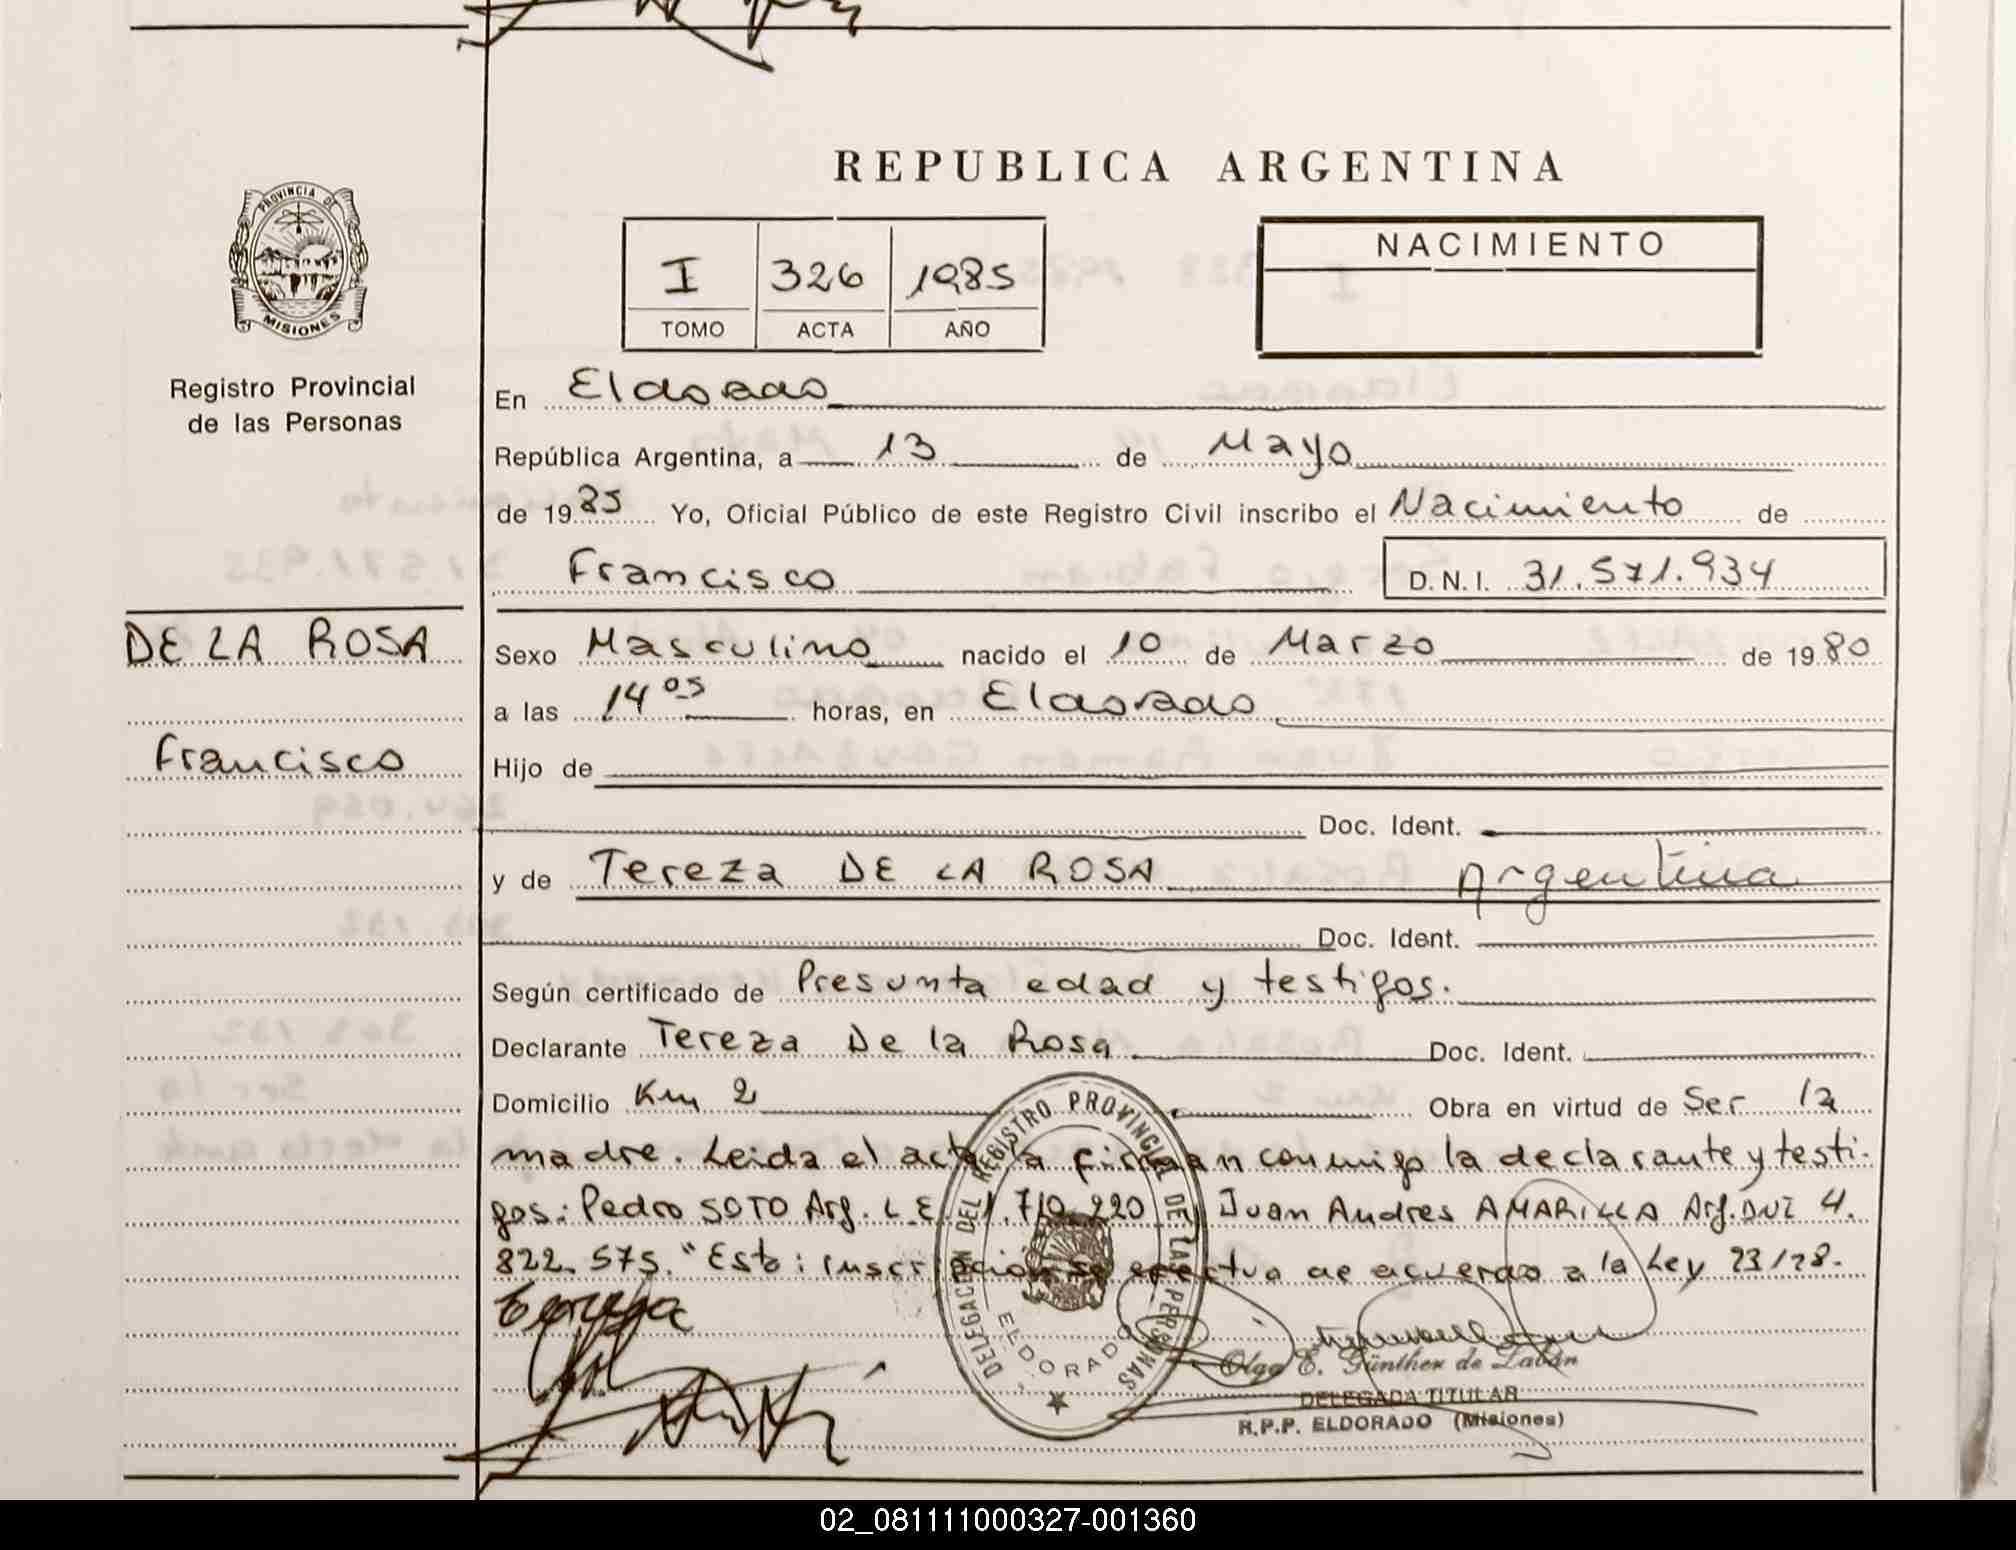 REPUBLICA ARGENTINA
PROVINCIA DE
MISIONES
Registro Provincial
de las Personas
I 326 1985
TOMO ACTA AÑO
NACIMIENTO
En Eldorado
República Argentina, a 13 de Mayo
de 1985 Yo, Oficial Público de este Registro Civil inscribo el Nacimiento de
Francisco D.N.I. 31.571.934
DE LA ROSA
Francisco
Sexo Masculino nacido el 10 de Marzo de 1980
a las 14 05 horas, en Eldorado
Hijo de
Doc. Ident.
y de Tereza DE LA ROSA Argentina
Doc. Ident.
Según certificado de Presunta edad y testigos.
Declarante Tereza De la Rosa Doc. Ident.
Domicilio Km 2 Obra en virtud de Ser la
madre. Leida el acta la firman conmigo la declarante y testi-
gos: Pedro SOTO Arg. L.E. 1.710.220 Juan Andres AMARILLA Arg. DNI 4.
822.575. "Esta: inscripción se efectua de acuerdo a la Ley 23128.
Tereza
DELEGACION DEL REGISTRO PROVINCIAL DE LAS PERSONAS
ELDORADO
Olga E. Günther de Labán
DELEGADA TITULAR
R.P.P. ELDORADO (Misiones)
02_081111000327-001360